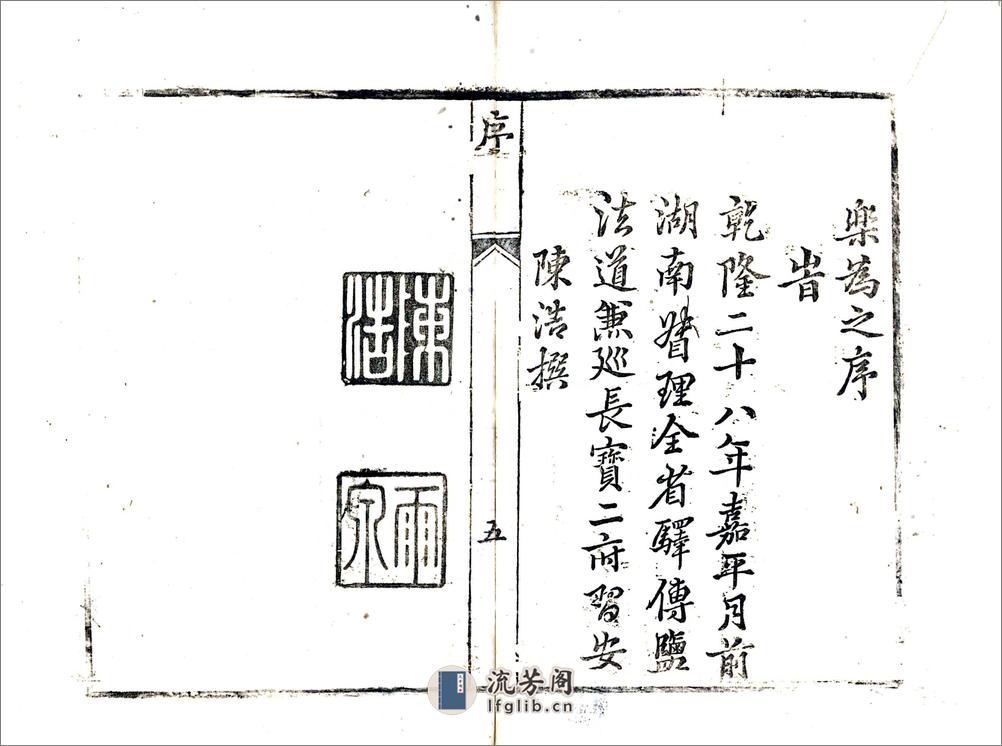 樂為之序
旹
乾隆二十八年嘉平月前
湖南督理全省驛傳鹽
法道兼巡長寶二府習安
陳浩撰
序
五
陳浩
雨泉
流芳阁
lfglib.cn